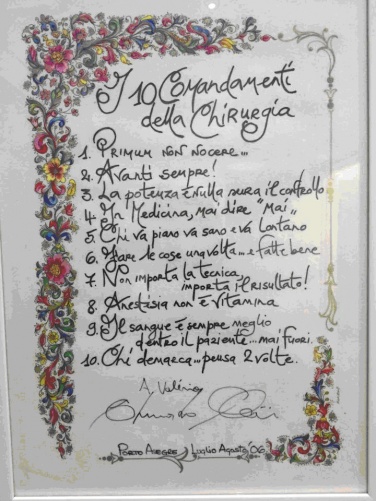 I 10 Comandamenti
della Chirurgia
1. Primum non nocere...
2. Avanti sempre!
3. La potenza è nulla sura il controllo
4. In Medicina, mai dire "Mai"
5. Chi va piano va sano e va lontano
6. Fare le cose una volta... e fatte bene
7. Non importa la tecnica,
importa il risultato!
8. Anestesia non è vitamina
9. Il sangue è sempre meglio
dentro il paziente... mai fuori.
10. Chi demarca... pensa 2 volte.
Porto Alegre, Luglio Agosto '06